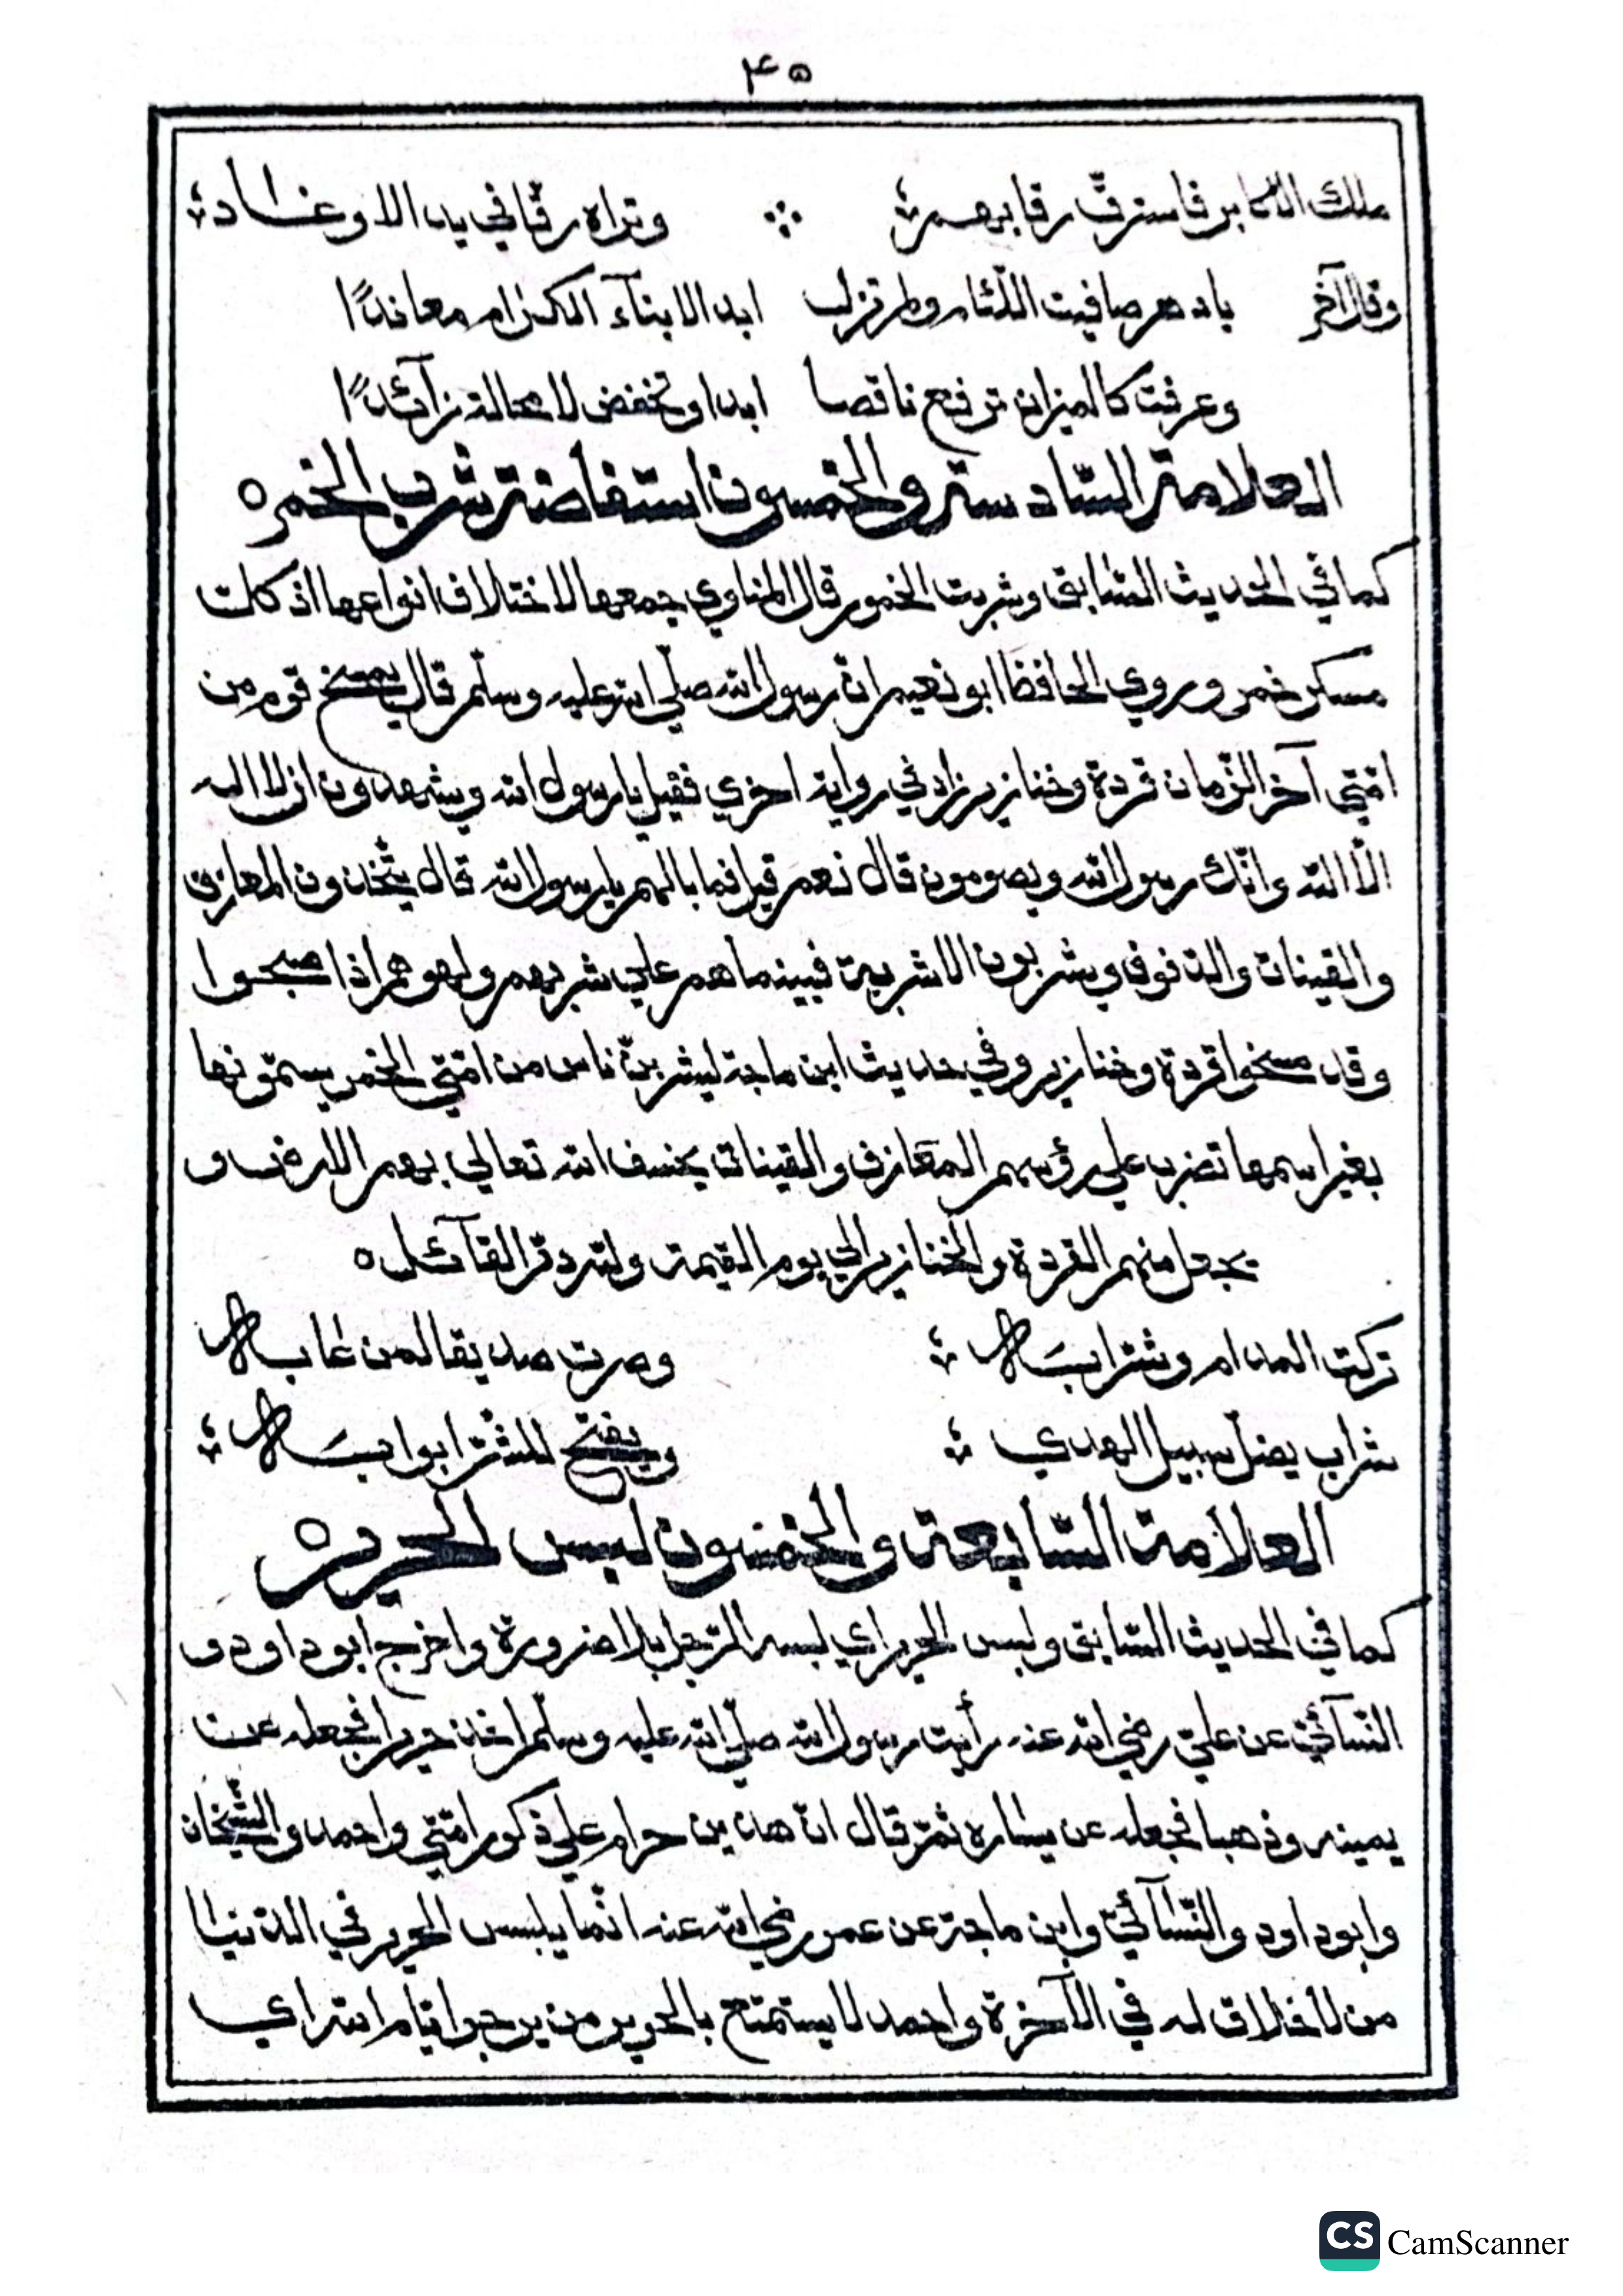 ٤٥
ملك الاكابر فاسترقّ رقابهم ؞ وتراه رقّا في يد الاوغاد ؞
وقال آخر يا دهر صافيت اللّئام ولم تزل ابدا لابنآء الكرام معاندًا
وعرفت كالميزان ترفع ناقصا ابدا وتخفض لا محالة زآئدًا
العلامة السّادسة والخمسون استفاضة شرب الخمر ه
كما في الحديث السّابق وشربت الخمور قال المناوي جمعها لاختلاف انواعها اذ كل
مسكر خمر وروي الحافظ ابو نعيم انّ رسول الله صلّي الله عليه وسلّم قال يمسخ قوم من
امّتي آخر الزّمان قردة وخنازير زاد في رواية اخري فقيل يا رسول الله ويشهدون ان لا اله
الّا الله وانّك رسول الله ويصومون قال نعم قيل فما بالهم يا رسول الله قال يتّخذون المعازف
والقينات والدفوف ويشربون الاشربة فبينما هم علي شربهم ولهوهم اذا صبحوا
وقد مسخوا قردة وخنازير وفي حديث ابن ماجة ليشربنّ ناس من امّتي الخمر يسمّونها
بغير اسمها تضرب علي رؤسهم المعازف والقينات يخسف الله تعالي بهم الارض و
يجعل منهم القردة والخنازير الي يوم القيمة ولله درّ القآئل ه
تركت المدام وشرّابهَا ؞ وصرت صديقا لمن عابها
شراب يضلّ سبيل الهدي ؞ ويفتح للشّرّ ابوابهَا ؞
العلامة السّابعة والخمسون لبس الحرير ه
كما في الحديث السّابق ولبس الحرير اي لبسه الرّجل بلا ضرورة واخرج ابوداود و
النّسآئيّ عن عليّ رضي الله عنه رأيت رسول الله صلّي الله عليه وسلّم اخذ حريرا فجعله عن
يمينه وذهبا فجعله عن يساره ثمّ قال انّ هذين حرام علي ذكور امّتي واحمد والشّيخان
وابوداود والنّسآئيّ وابن ماجة عن عمر رضي الله عنه انّما يلبس الحرير في الدّنيا
من لا خلاق له في الآخرة واحمد لا يستمتع بالحرير من يرجوا ايّام الله اي
CS CamScanner